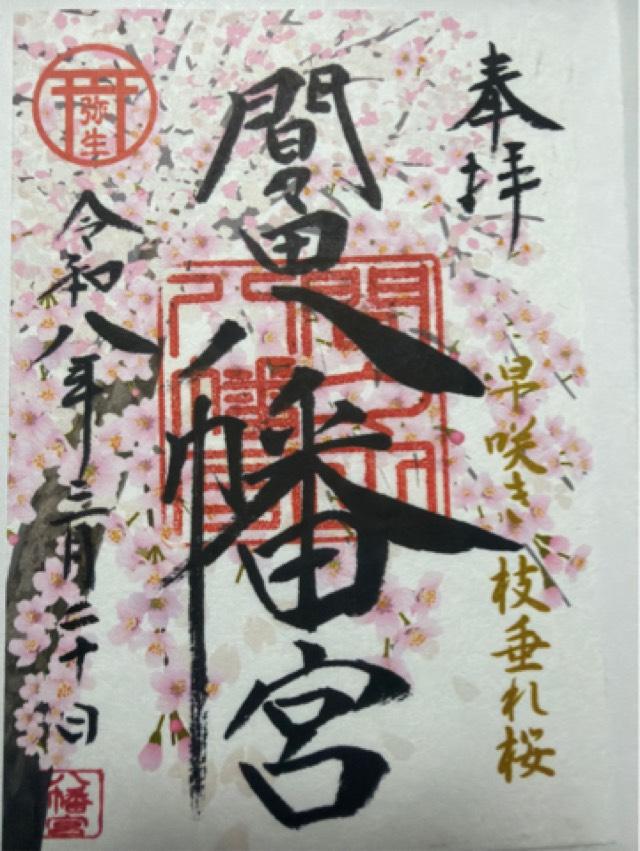 奉拝
早咲き 枝垂れ桜
間々田八幡宮
弥生
令和八年三月二十日
八幡宮